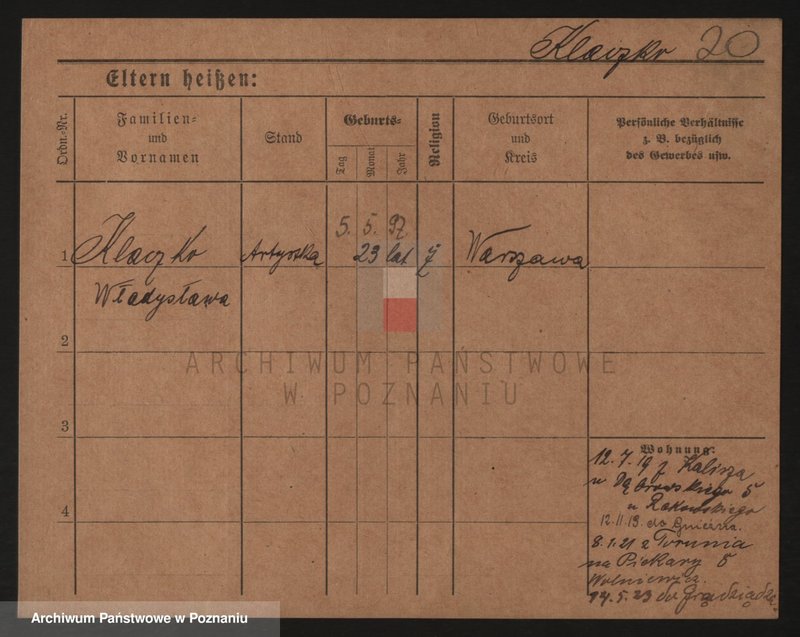 Klaczko 20
Eltern heißen:
Ordn.-Nr.
Familien-
und
Vornamen
Stand
Geburts-
Tag
Monat
Jahr
Religion
Geburtsort
und
Kreis
Persönliche Verhältnisse
z. B. bezüglich
des Gewerbes usw.
5. 5. 97
1 Klaczko Artystka 23 lat Warszawa
Władysława
2
3
4
Wohnung:
12.7.19 z Kalisza
u Dąbrowskiego 5
u Rakowskiego
12.11.19. do Gniezna.
8.1.21 z Torunia
na Piekary 5
14.5.23 do Grądziądz
ARCHIWUM PAŃSTWOWE
W POZNANIU
Archiwum Państwowe w Poznaniu